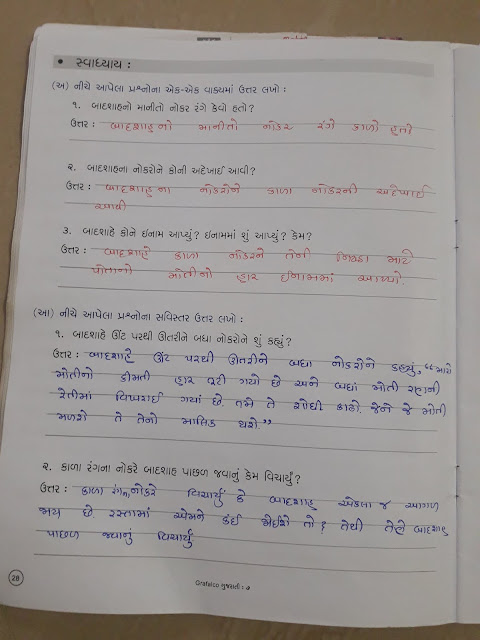 • સ્વાધ્યાય :
(અ) નીચે આપેલા પ્રશ્નોના એક-એક વાક્યમાં ઉત્તર લખો :
૧. બાદશાહનો માનીતો નોકર રંગે કેવો હતો?
ઉત્તર : બાદશાહનો માનીતો નોકર રંગે કાળો હતો
૨. બાદશાહના નોકરોને કોની અદેખાઈ આવી?
ઉત્તર : બાદશાહના નોકરોને કાળા નોકરની અદેખાઈ
આવી
૩. બાદશાહે કોને ઇનામ આપ્યું? ઇનામમાં શું આપ્યું? કેમ?
ઉત્તર : બાદશાહે કાળા નોકરને તેની નિષ્ઠા માટે
પોતાનો મોતીનો હાર ઈનામમાં આપ્યો.
(આ) નીચે આપેલા પ્રશ્નોના સવિસ્તર ઉત્તર લખો :
૧. બાદશાહે ઊંટ પરથી ઊતરીને બધા નોકરોને શું કહ્યું?
ઉત્તર : બાદશાહે ઊંટ પરથી ઊતરીને બધા નોકરોને કહ્યું, "મારો
મોતીનો કીમતી હાર તૂટી ગયો છે અને બધાં મોતી રણની
રેતીમાં વિખરાઈ ગયાં છે. તમે તે શોધી કાઢો. જેને જે મોતી
મળશે તે તેનો માલિક થશે"
૨. કાળા રંગના નોકરે બાદશાહ પાછળ જવાનું કેમ વિચાર્યું?
ઉત્તર : કાળા રંગના નોકરે વિચાર્યું કે બાદશાહ એકલા જ આગળ
જાય છે. રસ્તામાં એમને કંઈ જોઈશે તો? તેથી તેણે બાદશાહ
પાછળ જવાનું વિચાર્યું
28
Grafalco ગુજરાતી : ૭